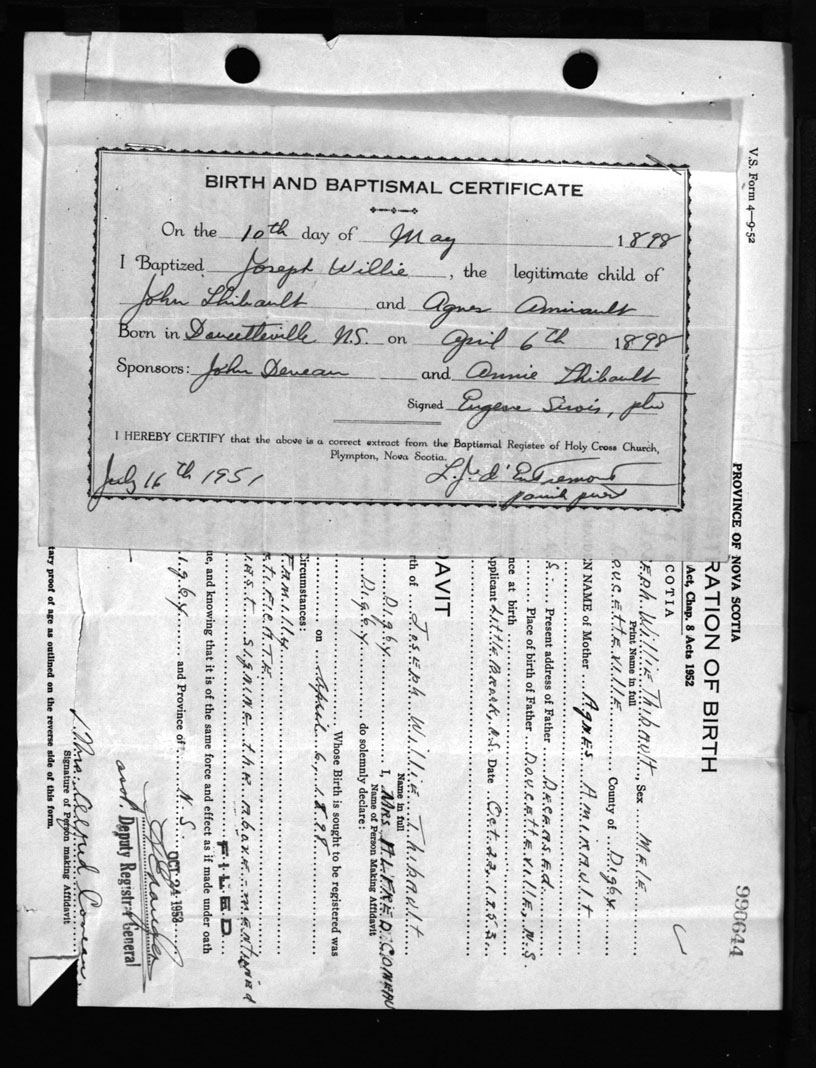 BIRTH AND BAPTISMAL CERTIFICATE
On the 10th day of May 1898
I Baptized Joseph Willie, the legitimate child of
John Thibault and Agnes Amirault
Born in Doucetteville N.S. on April 6th 1898
Sponsors: John Deveau and Annie Thibault
Signed Eugene Sirois, ptre
I HEREBY CERTIFY that the above is a correct extract from the Baptismal Register of Holy Cross Church,
Plympton, Nova Scotia.
July 16th 1951 L. J. d'Entremont
V.S. Form 4—9-52
990644
PROVINCE OF NOVA SCOTIA
RATION OF BIRTH
Act, Chap. 8 Acts 1952
COTIA
SEPH WILLIE Thibault, Sex MELE
Print Name in full
OUCETTEVILLE County of Digby
N NAME of Mother AGNES AMIRAULT
S. Present address of Father DECEASED
Place of birth of Father DOUCETTEVILLE, N.S.
nce at birth
pplicant LITTLE BROOK, N.S. Date Oct. 22, 1953
DAVIT
rth of JOSEPH WILLIE Thibault
Name in full
Digby I, MRS ALFRED COMEAU
Name of Person Making Affidavit
Digby do solemnly declare:
Whose Birth is sought to be registered was
on April 6, 1898
Circumstances:
FAMILY
TIFICATE
SIGNING THE ABOVE-MENTIONED
FILED
ue, and knowing that it is of the same force and effect as if made under oath
igby and Province of N.S.
OCT 24 1953
Deputy Registrar General
Mrs. Alfred Comeau
Signature of Person making Affidavit
tary proof of age as outlined on the reverse side of this form.